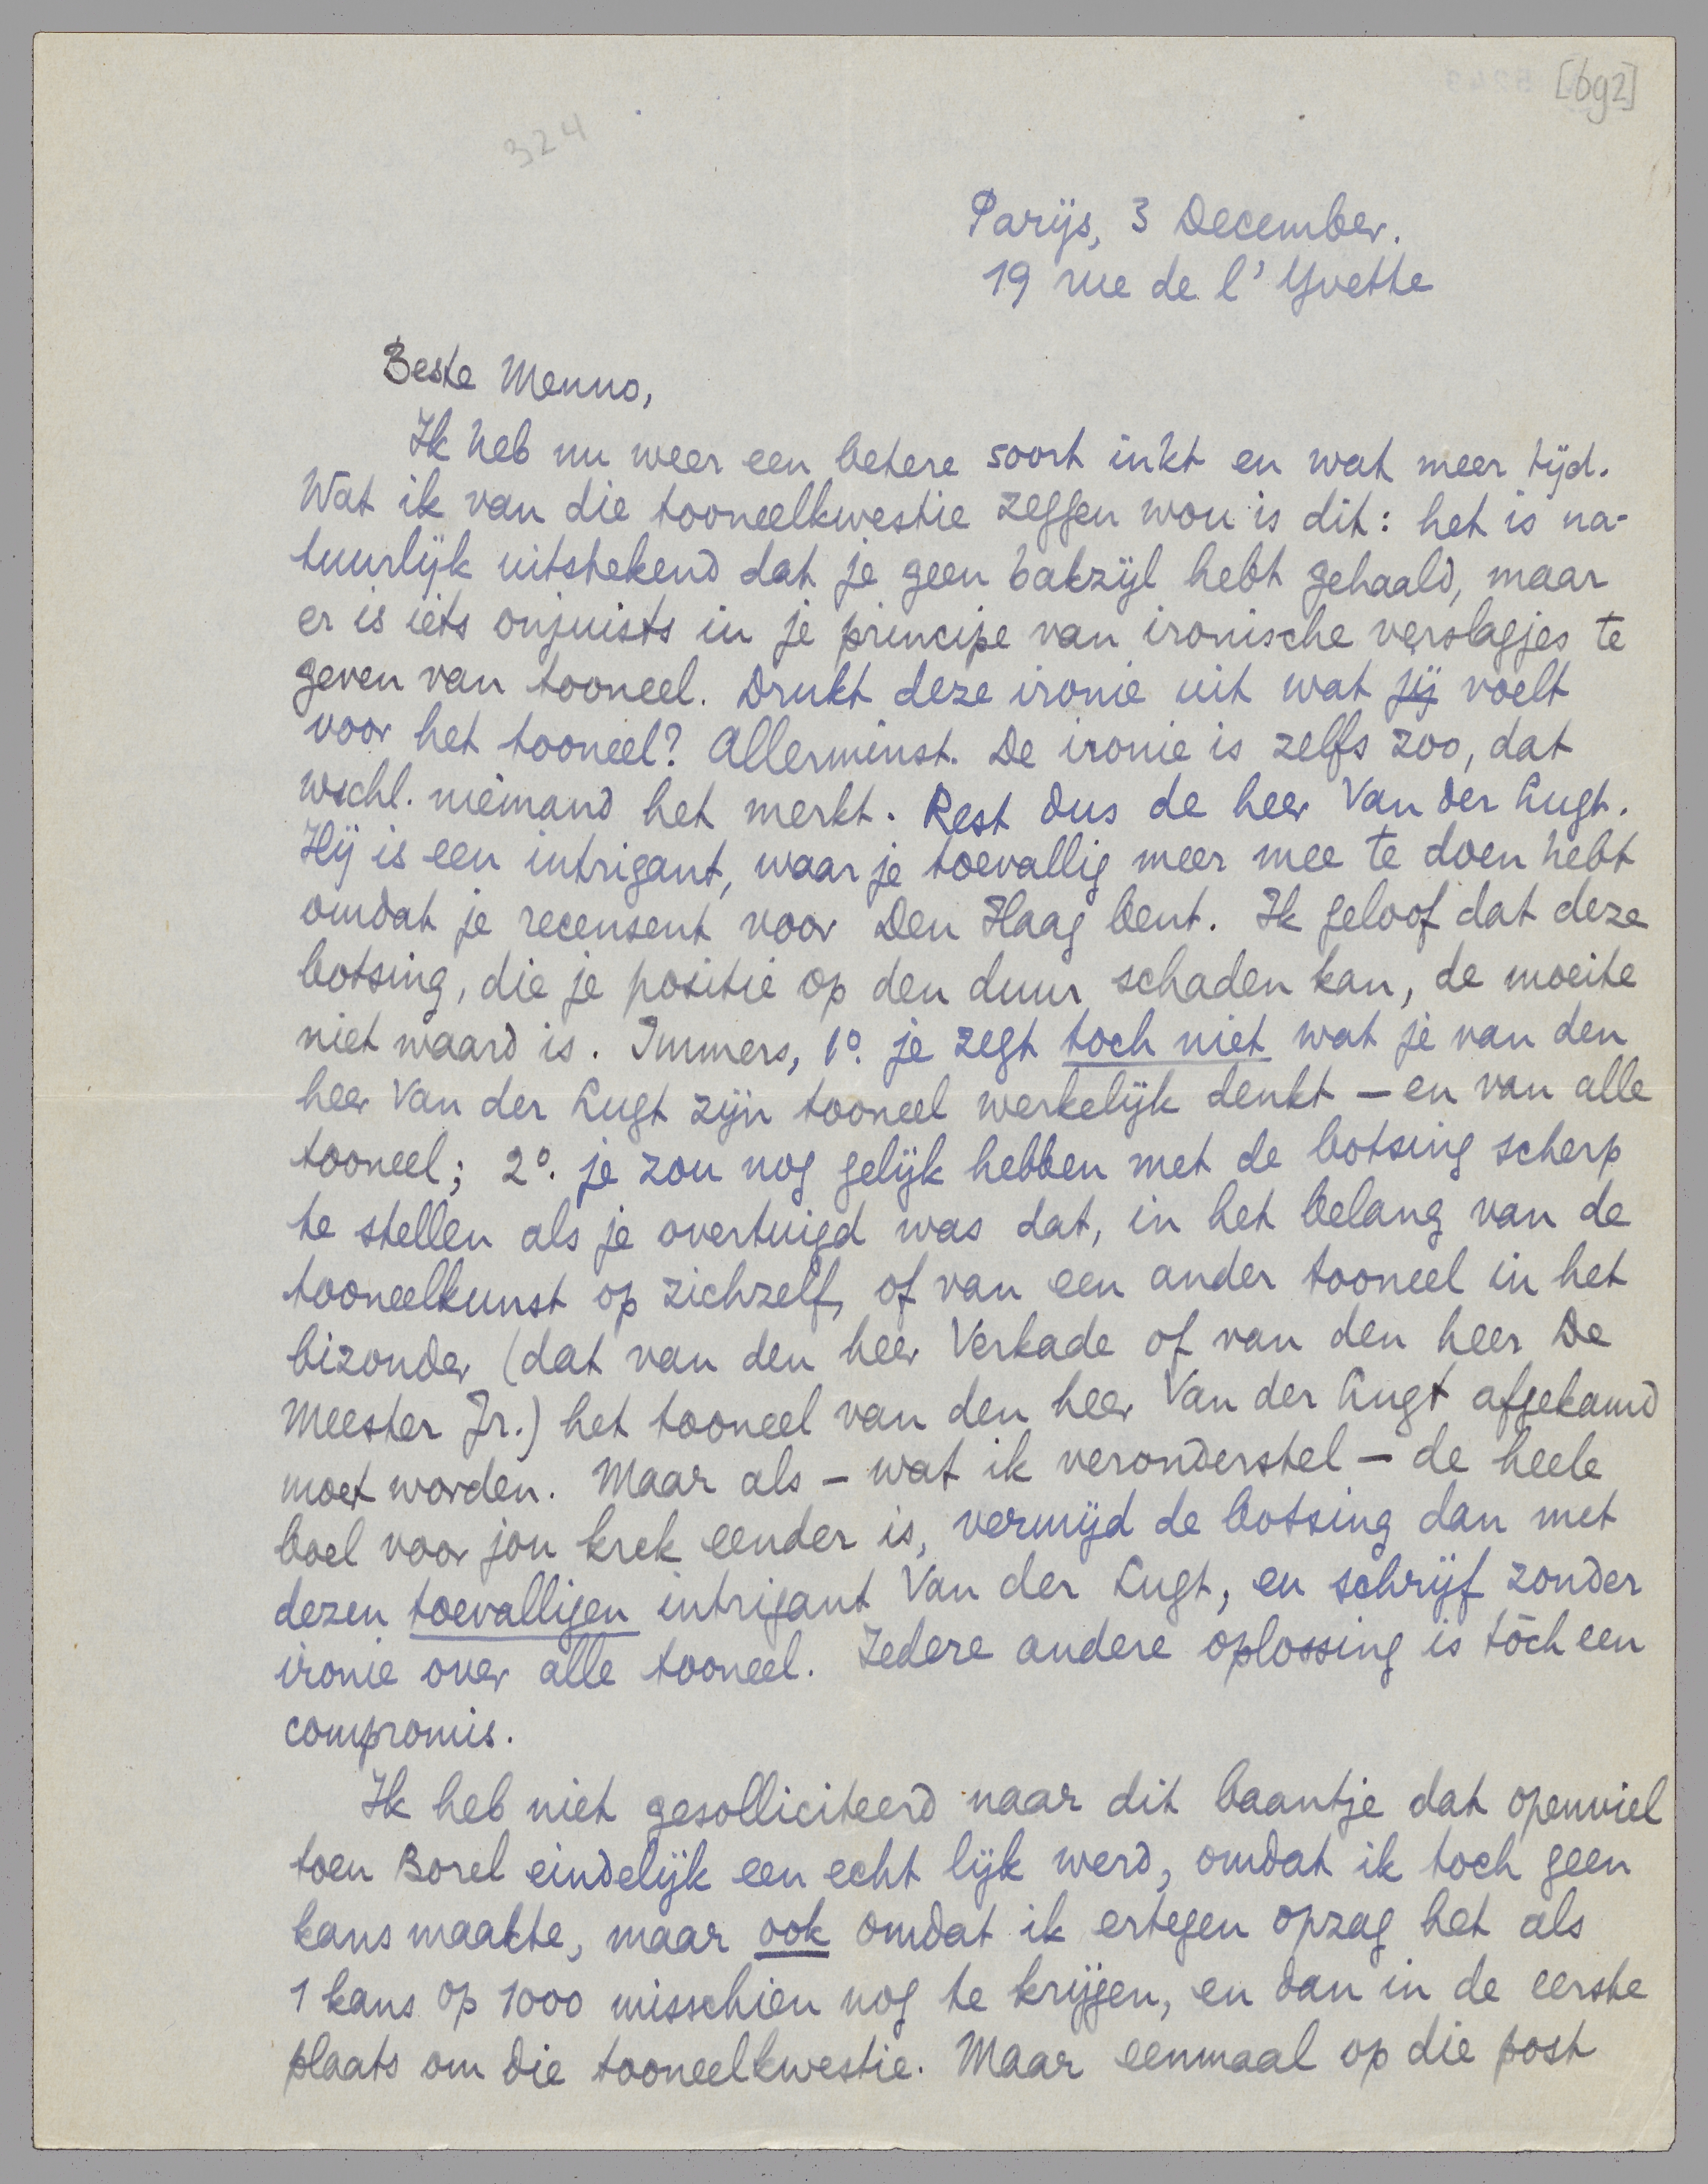 [692]
324
Parijs, 3 December.
19 rue de l'Yvette
Beste Menno,
Ik heb nu weer een betere soort inkt en wat meer tijd.
Wat ik van die tooneelkwestie zeggen wou is dit: het is na-
tuurlijk uitstekend dat je geen bakzijl hebt gehaald, maar
er is iets onjuists in je principe van ironische verslagjes te
geven van tooneel. Drukt deze ironie uit wat jij voelt
voor het tooneel? Allerminst. De ironie is zelfs zoo, dat
wschl. niemand het merkt. Rest dus de heer Van der Lugt.
Hij is een intrigant, waar je toevallig meer mee te doen hebt
omdat je recensent voor Den Haag bent. Ik geloof dat deze
botsing, die je positie op den duur schaden kan, de moeite
niet waard is. Immers, 1º. je zegt toch niet wat je van den
heer Van der Lugt zijn tooneel werkelijk denkt – en van alle
tooneel; 2º. je zou nog gelijk hebben met de botsing scherp
te stellen als je overtuigd was dat, in het belang van de
tooneelkunst op zichzelf, of van een ander tooneel in het
bizonder (dat van den heer Verkade of van den heer De
Meester Jr.) het tooneel van den heer Van der Lugt afgekamd
moet worden. Maar als – wat ik veronderstel – de heele
boel voor jou krek eender is, vermijd de botsing dan met
dezen toevalligen intrigant Van der Lugt, en schrijf zonder
ironie over alle tooneel. Iedere andere oplossing is tòch een
compromis.
Ik heb niet gesolliciteerd naar dit baantje dat openviel
toen Borel eindelijk een echt lijk werd, omdat ik toch geen
kans maakte, maar ook omdat ik ertegen opzag het als
1 kans op 1000 misschien nog te krijgen, en dan in de eerste
plaats om die tooneelkwestie. Maar eenmaal op die post